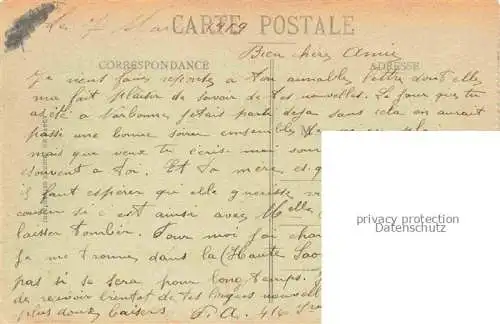 Le 7 Mars 1919
CARTE POSTALE
Bien chère Amie
CORRESPONDANCE
ADRESSE
Je viens faire reponse a ton aimable lettre dont elle
ma fait plaisir de savoir de tes nouvelles. Le jour que tu
a été a Narbonne jetais parti deja sans cela on aurait
passi une bonne soirer ensembles
mais que veux tu écris moi
souvent a toi. Et ta mère
il faut espérer que elle guerisse
si c est ainsi avec Melle
laisser tomber. Pour moi j ai
je me trouve dans la (Haute Sao
pas si se sera pour longtemps.
de recevoir bientot de tes longues nouvelle
plus doux baisers F. A. 416
privacy protection
Datenschutz